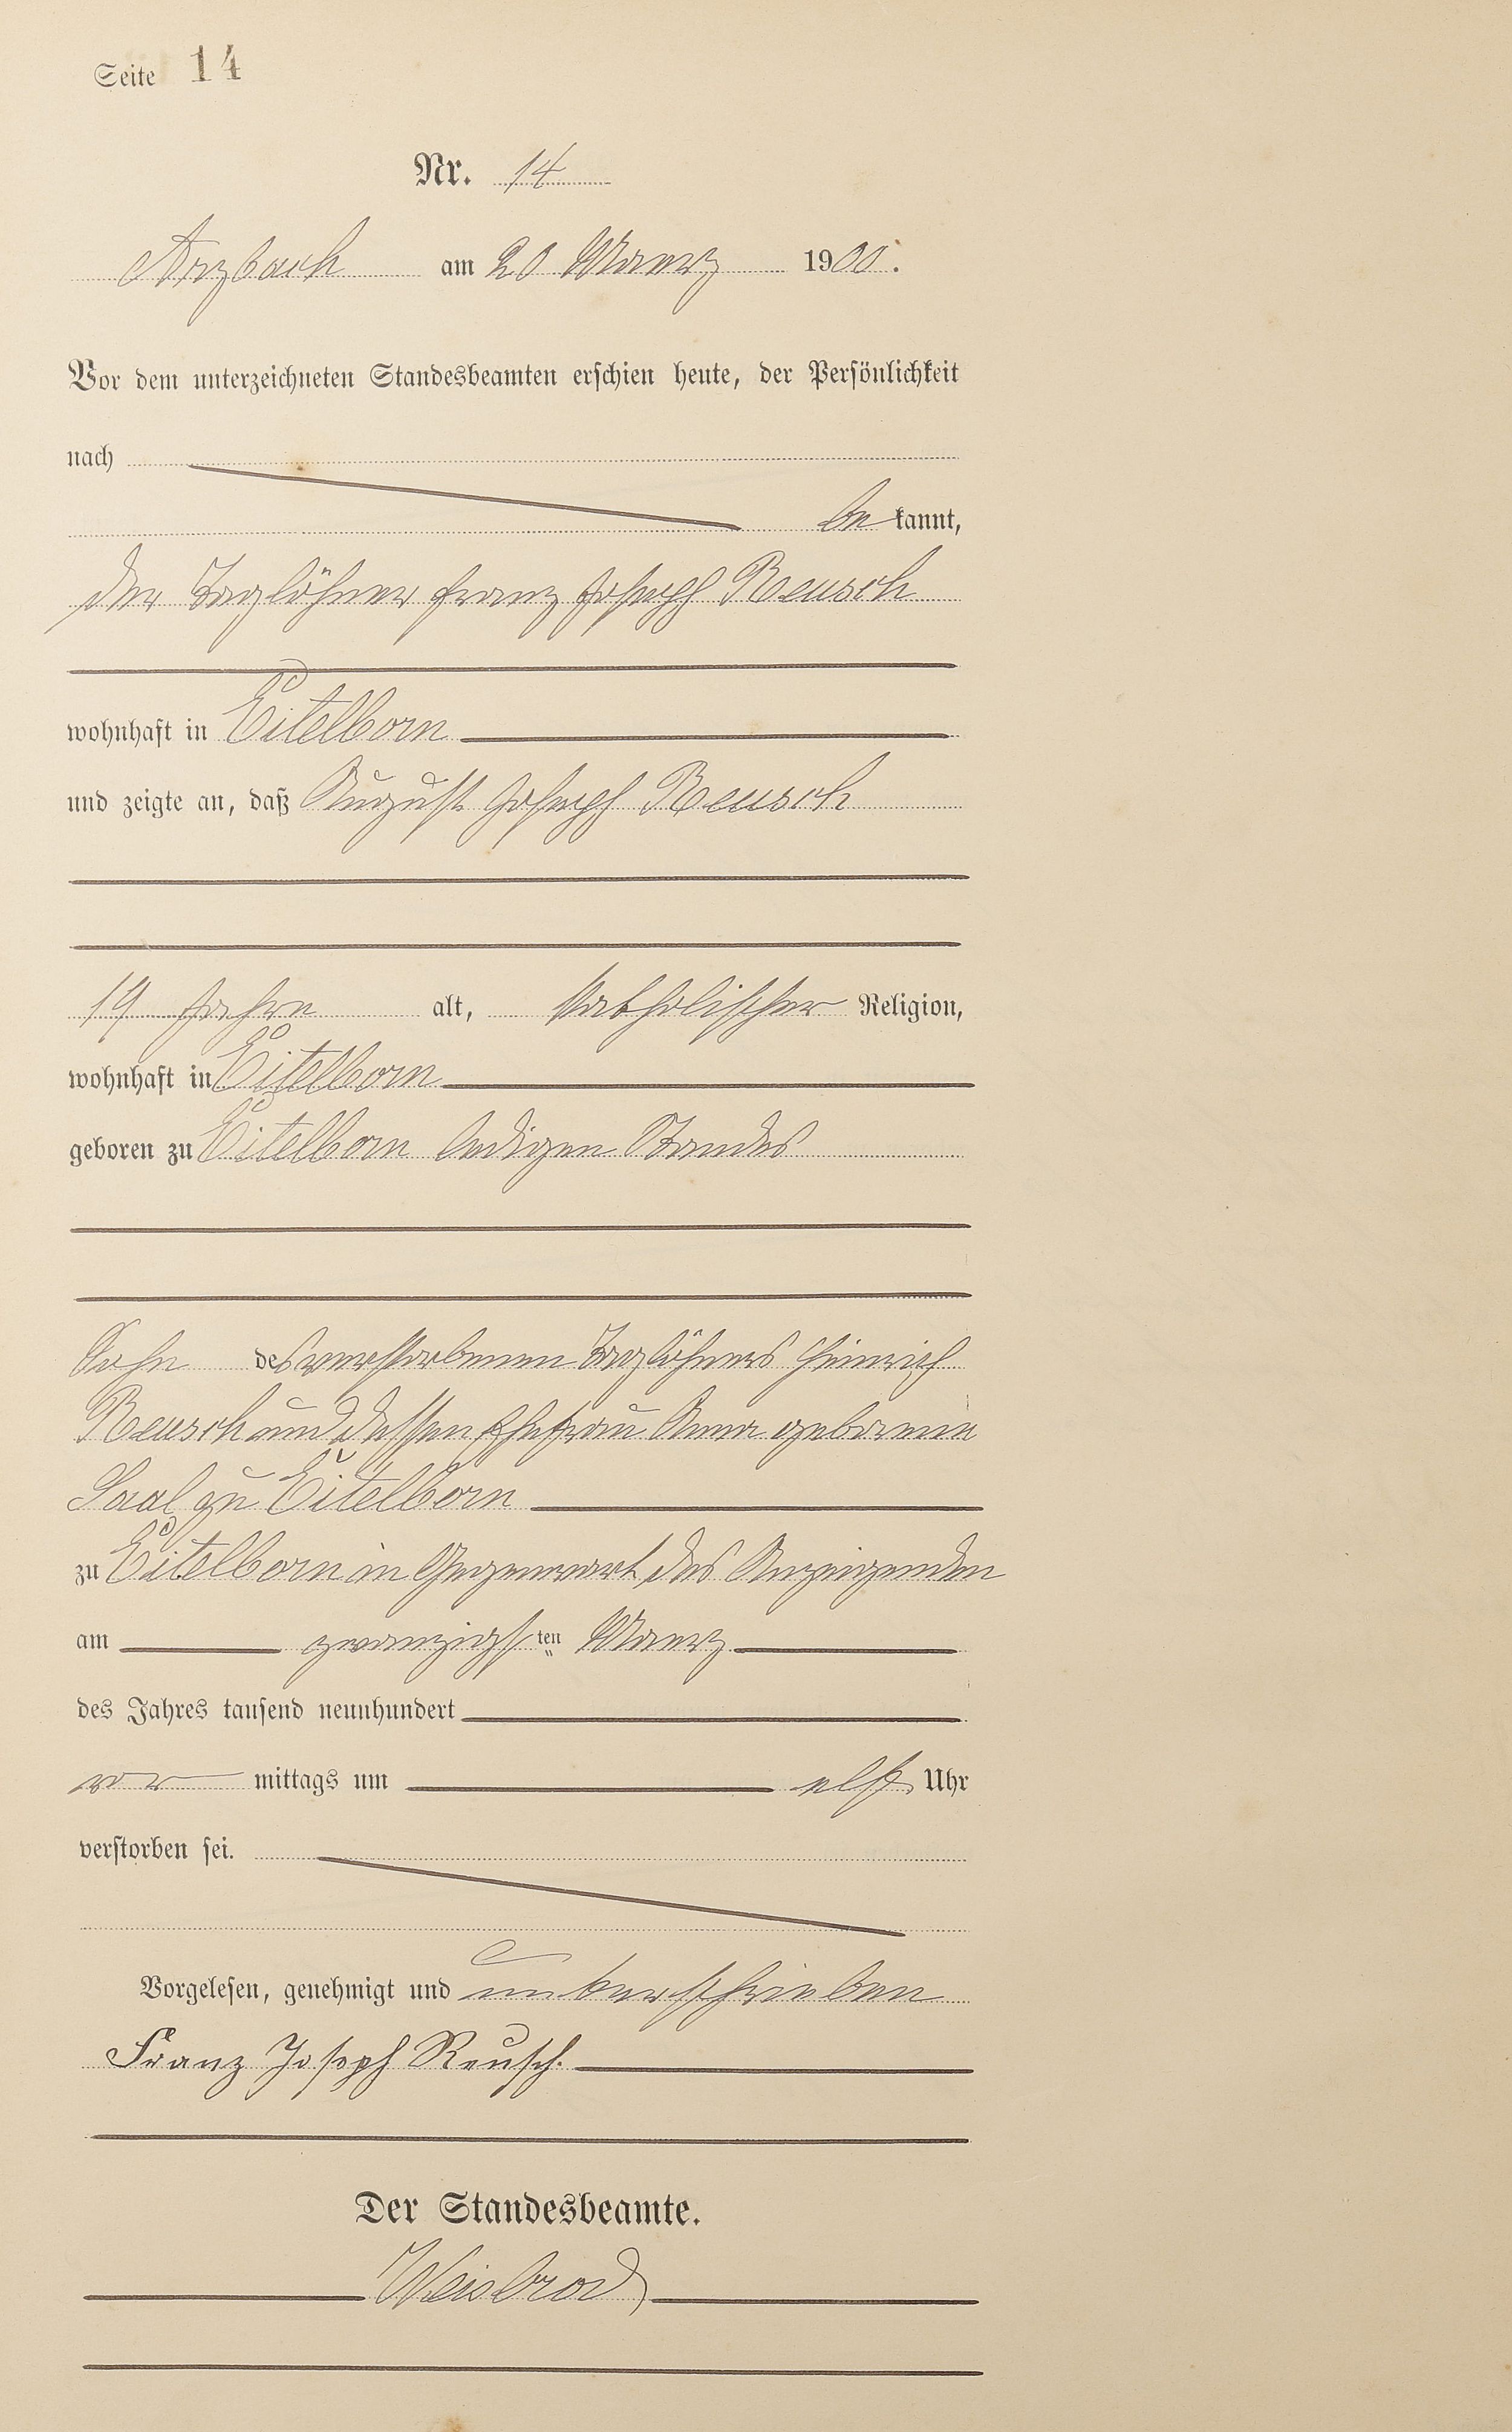 Seite 14
Nr. 14
Arzbach am 20 Maerz 1900.
Vor dem unterzeichneten Standesbeamten erschien heute, der Persönlichkeit
nach
be kannt,
der Taglöhner Franz Joseph Reusch
wohnhaft in Eitelborn
und zeigte an, daß August Joseph Reusch
19 Jahre alt, katholischer Religion,
wohnhaft in Eitelborn
geboren zu Eitelborn ledigen Standes
Sohn des verstorbenen Taglöhners Heinrich
Reusch und dessen Ehefrau Anna geborene
Saal zu Eitelborn
zu Eitelborn in Gegenwart des Anzeigenden
am zwanzigsten Maerz
des Jahres tausend neunhundert
vor mittags um elf Uhr
verstorben sei.
Vorgelesen, genehmigt und unterschrieben
Franz Joseph Reusch.
Der Standesbeamte.
Weisbrod